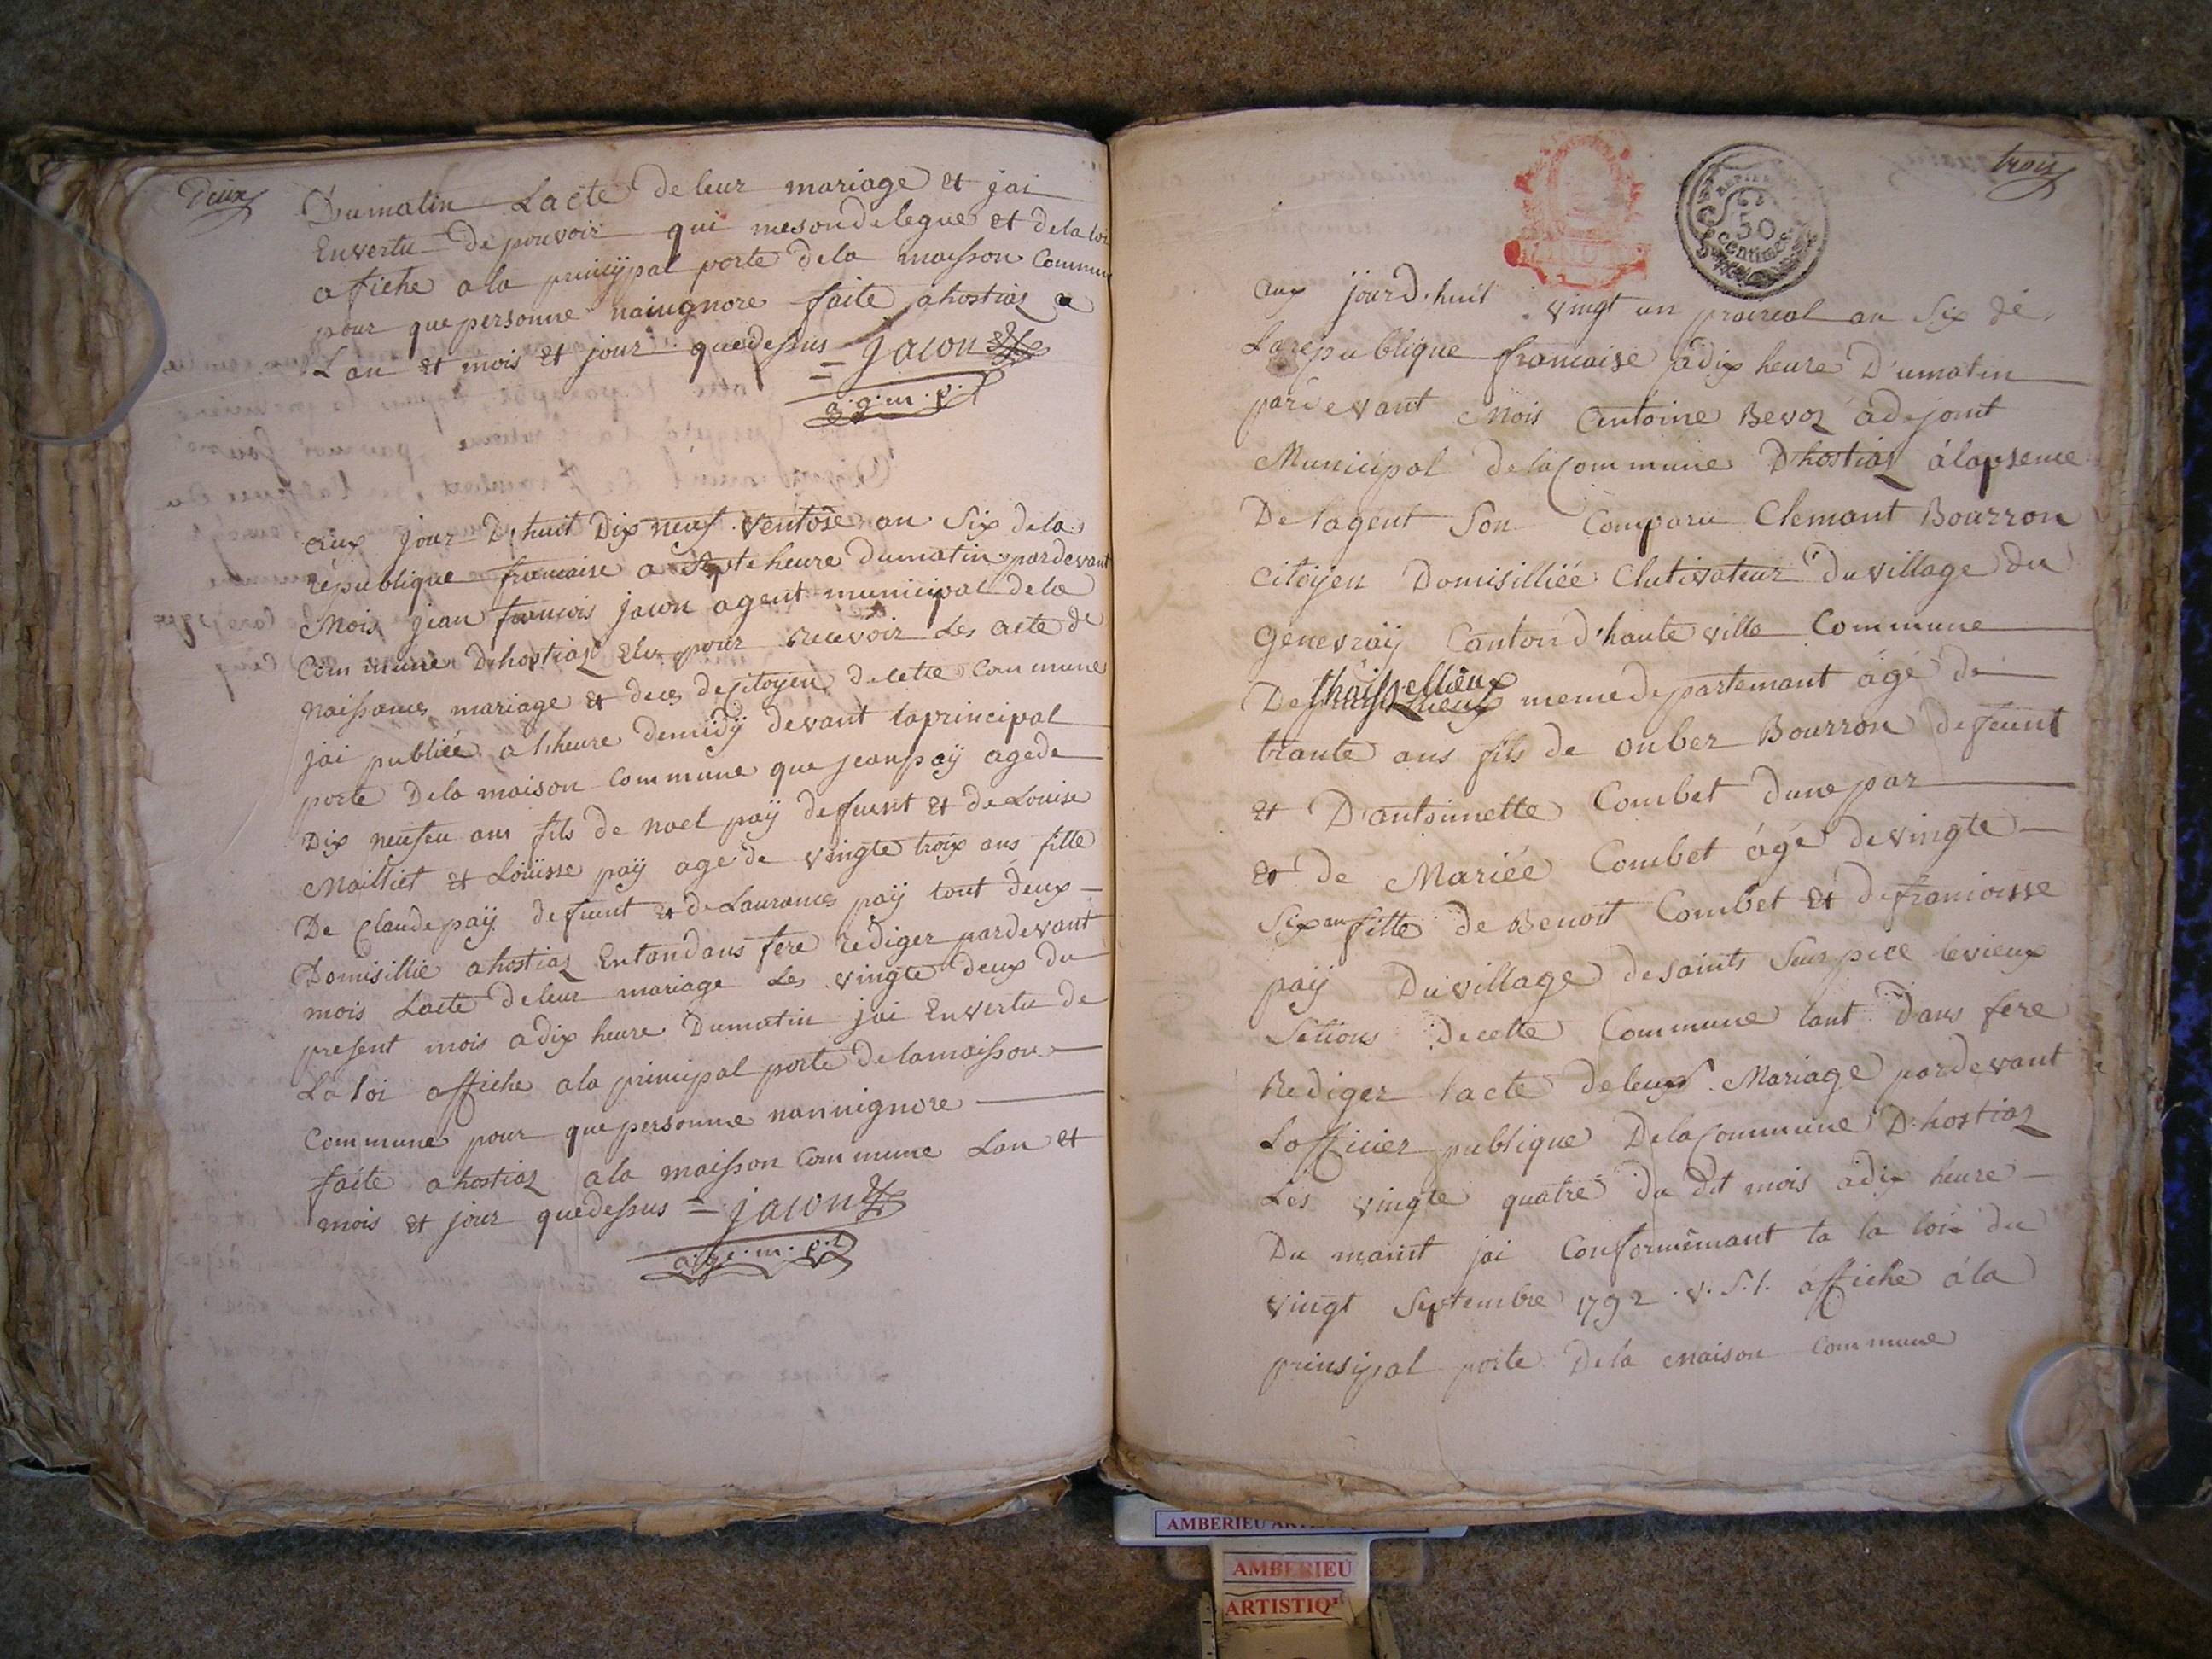 Deux
Dumatin Lacte de leur mariage et jai
Envertu de pouvoir qui mesondelegue et dela loi
afiche ala princypal porte dela maisson Commune
pour que personne naingnore faite ahostiaz a
Lan et mois et jour quedessus = Jacon
a.g.m.p.l
aux jour D'huit Dix neuf ventose an Six dela
republique francaise a Septe heure dumatin pardevant
Mois jean francois jacon agent municipal dela
Commune Dhostiaz Elu pour recevoir Les acte de
naissances mariage et deces decitoyens decette Commune
jai publiée a lheure demidÿ devant laprincipal
porte Dela maison Commune que jeanpaÿ agede
Dix neufeu ans fils de noel paÿ defuent et de Louise
Mailliet et Loüisse paÿ age de vingte troix ans fille
De Claudepaÿ defuent et de Laurances paÿ tout deux
Domisillie ahostiaz Entandans fere rediger pardevant
mois Lacte deleur mariage Les vingte deux du
present mois adix heure Dumatin jai Envertu de
La loi affiche ala principal porte de lamaisson
Commune pour que personne nannignore
faite ahostiaz ala maisson Commune Lan et
mois et jour quedessus = jacon
a.ge.m.p.l
trois
50
Centimes
aux jourd'huit vingt un prairial an Six de
La republique francaise àdix heure D'umatin
pardevant Mois Antoine Bevoz àdejoint
Municipal delaCommune D'hostiaz àlapsence
De lagent Son Comparu Clemant Bourron
Citoÿen Domisilliée Clutivateur Du village du
Genevraÿ Canton d'haute ville Commune
De meme departemant àgé de
trante ans fils de onbez Bourron defeunt
et D'antoinette Combet dune par
et de Mariée Combet àgé de vingte
Six an fille de Benoit Combet et defrancoisse
paÿ Du village de saints Seurpice levieux
Sections decette Commune tant Dans fere
Rediger lacte deleur Mariage pardevant
Lofficiez publique DelaCommune D'hostiaz
Les vingte quatre du dit mois àdix heure
Du mant jai Conformémant ta la loi du
vingt Septembre 1792 v.S.t. àffiche àla
prinsipal porte Dela maison Commune
AMBERIEU
AMBERIEU
ARTISTIQ